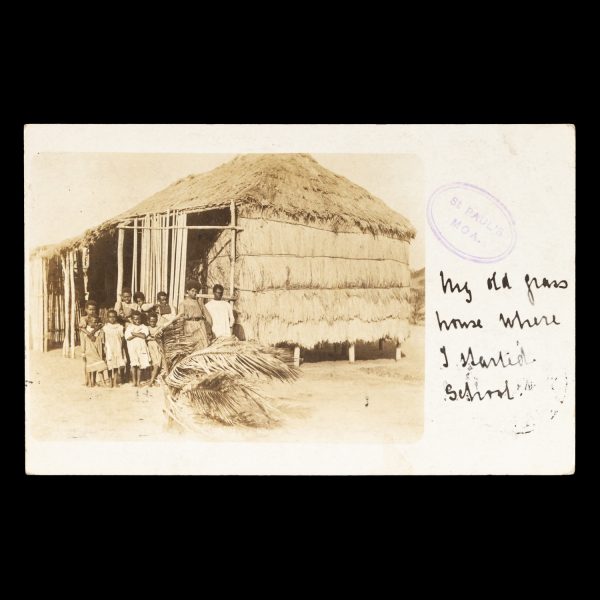 ST PAUL'S.
MOA.
My old grass
house where
I started
School.